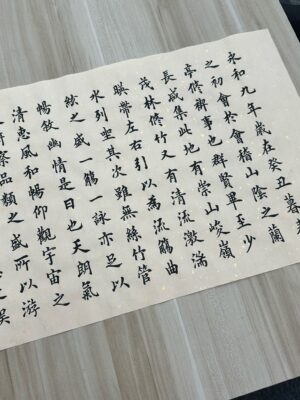 永和九年歲在癸丑暮
之初會於會稽山陰之蘭
亭修禊事也群賢畢至少
長咸集此地有崇山峻嶺
茂林修竹又有清流激湍
暎帶左右引以為流觴曲
水列坐其次雖無絲竹管
絃之盛一觴一詠亦足以
暢敘幽情是日也天朗氣
清惠風和暢仰觀宇宙之
察品類之盛所以游
娛